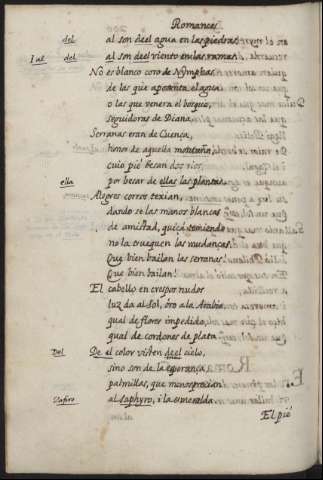 Romances
del al son deel agua en las piedras,
I al del al son deel viento en las ramas.
No es blanco coro de Nymphas
de las que aposenta el agua
o las que venera el bosque,
seguidoras de Diana.
Serranas eran de Cuenca,
honor de aquella montaña,
cuio pié besan dos rios,
ella por besar de ellas las plantas.
Alegres corros texian,
dando se las manos blancas
de amistad, quiçá temiendo
no la truequen las mudanças.
Que bien bailan las serranas!
Que bien bailan!
El cabello en crespos nudos
luz da al Sol, oro a la Arabia,
qual de flores impedido,
qual de cordones de plata.
Del De el color visten deel cielo,
sino son de la esperança
palmillas, que menosprecian
Safiro al saphyro, i la esmeralda.
El pié